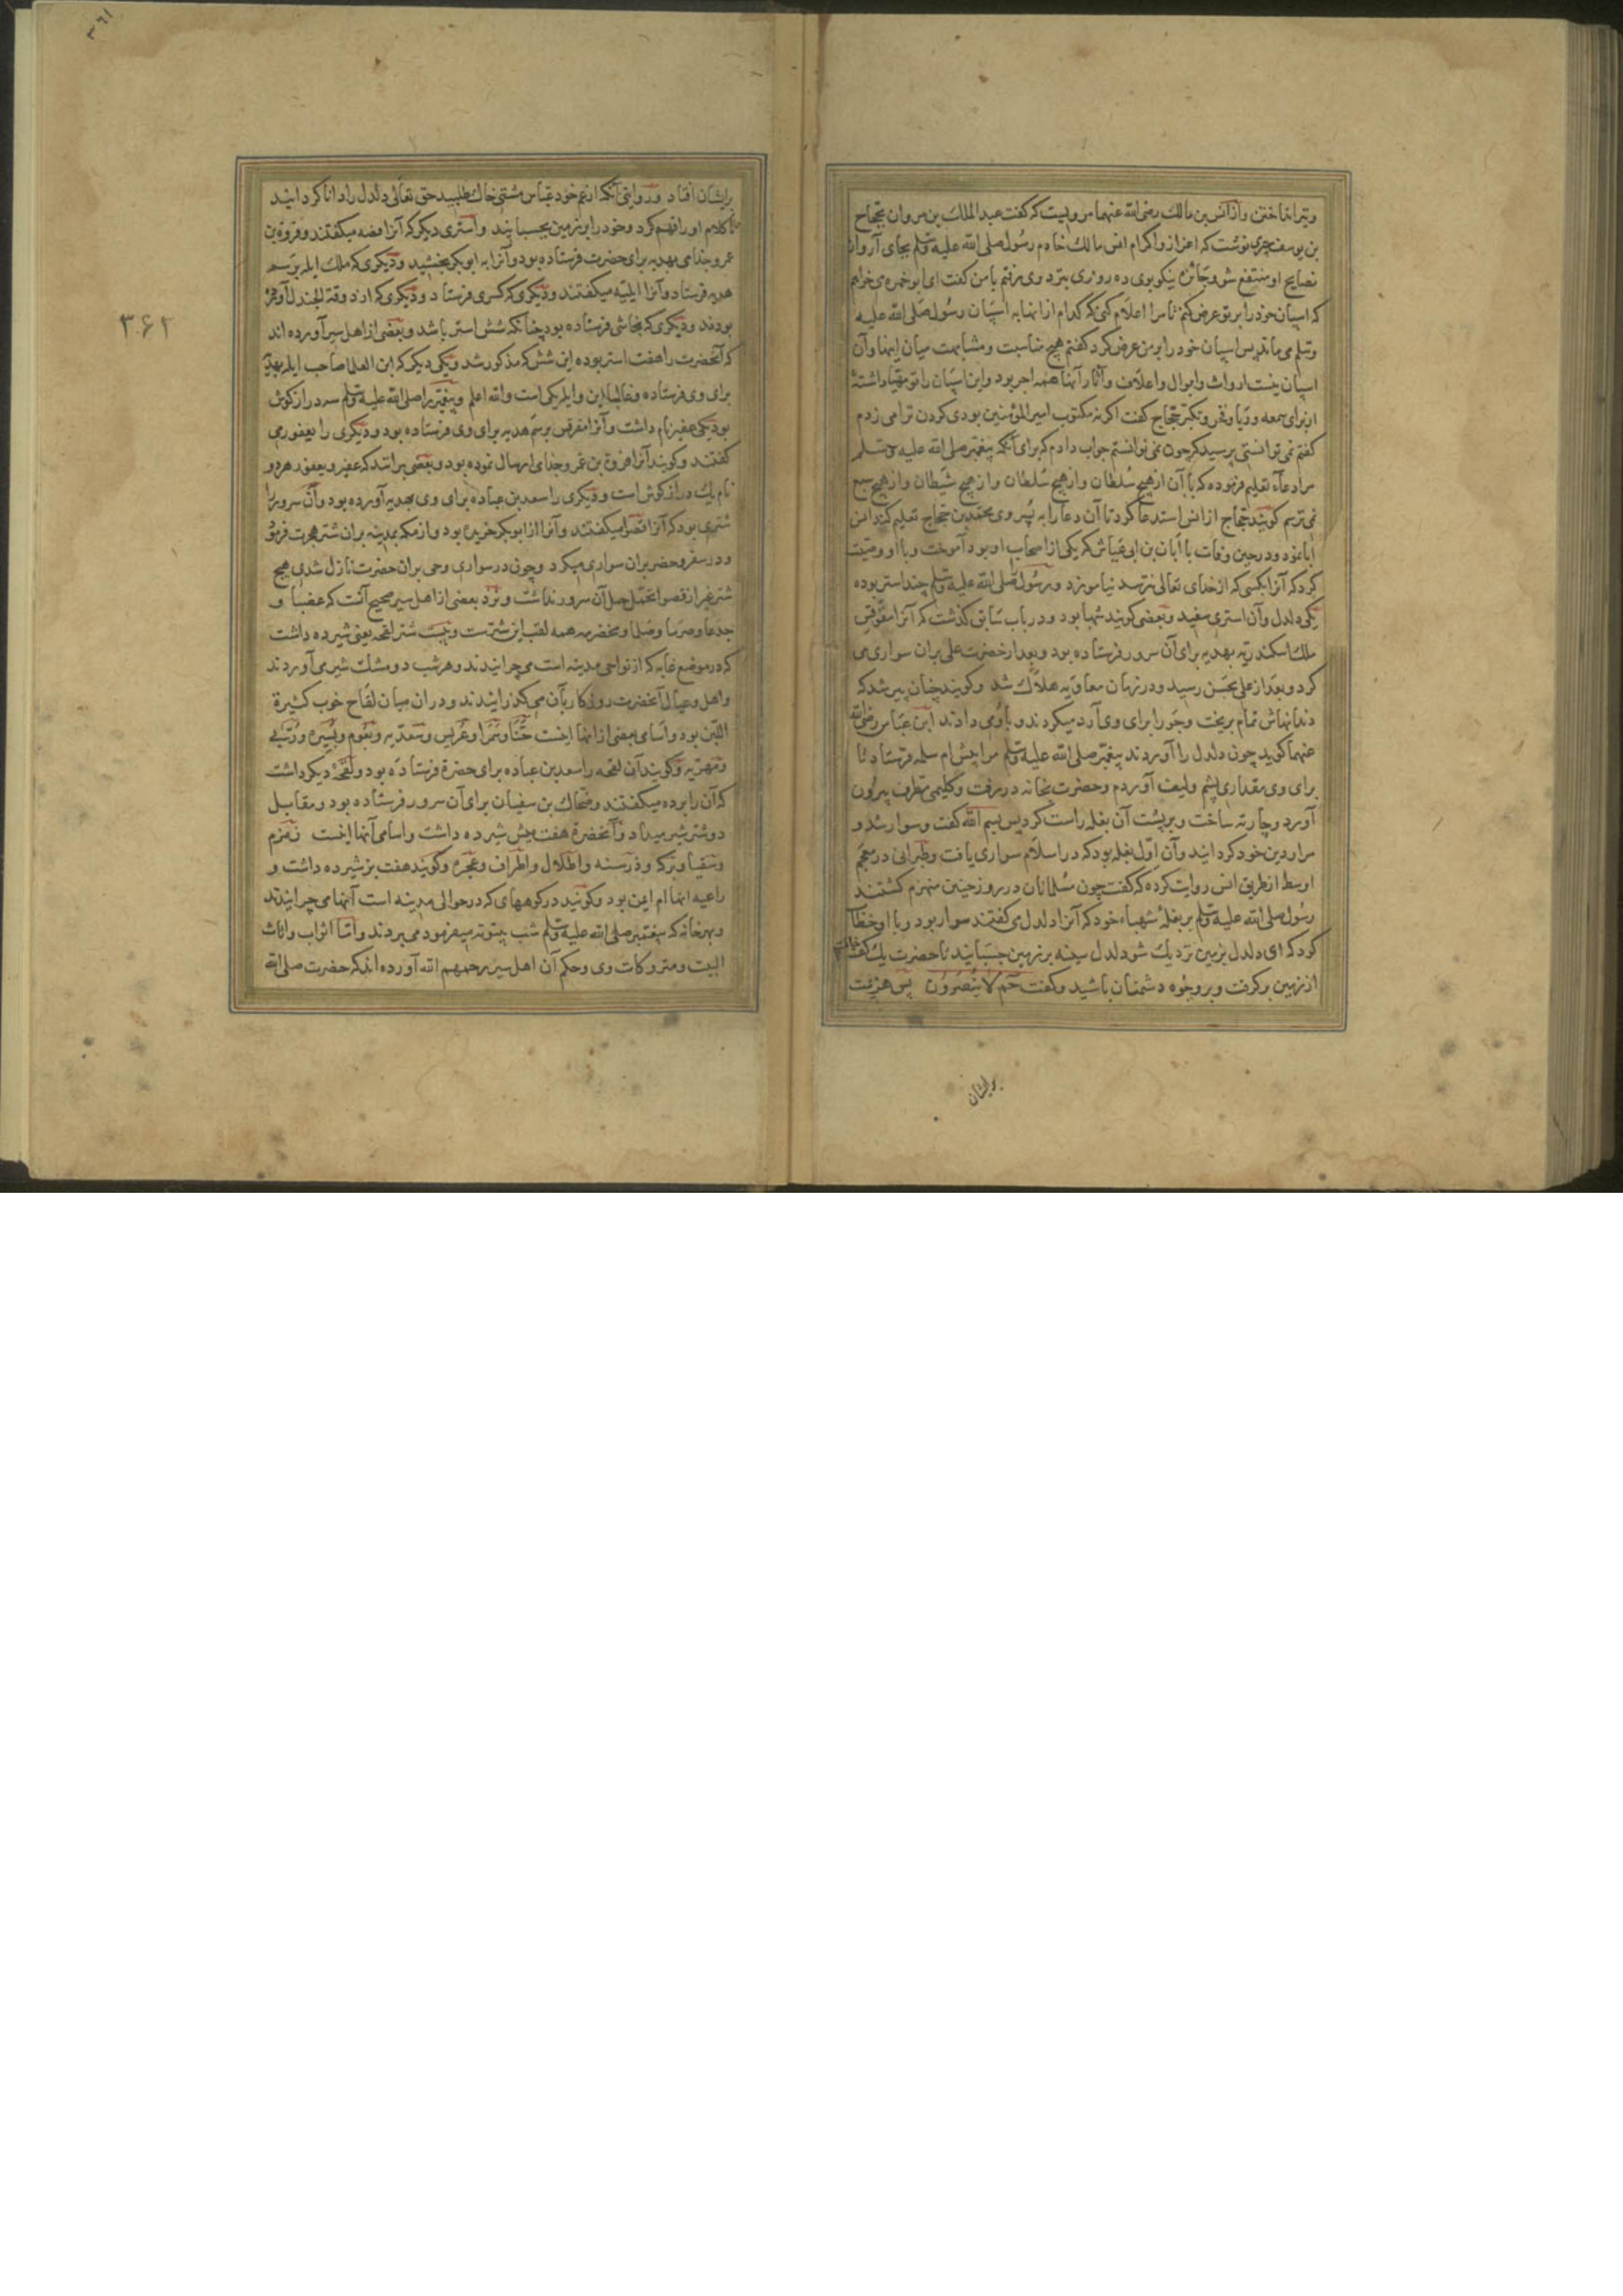 وتیر انداختن واز انس بن مالك رضی الله عنهما مرویست که گفت عبد الملك بن مروان بحجاج
بن یوسف چیزی نوشت که اعزاز واکرام انس مالك خادم رسول صلی الله علیه وسلم بجای آر واز
نصایح او منتفع شو وجائزه نیکو بوی ده روزی بنزد وی رفتم با من گفت ای ابو حمزه می خواهم
که اسپان خود را بر تو عرض کنم تا مرا اعلام کنی که کدام از انها به اسپان رسول صلی الله علیه
وسلم می ماند پس اسپان خود را بر من عرض کرد گفتم هیچ مناسبت ومشابهت میان اینها وآن
اسپان نیست ارواث وابوال واعلاف وآثار آنها همه اجر بود واین اسپان را تو مهیا داشتۀ
از برای سمعه وریا وفخر وتکبر حجاج گفت اگر نه مکتوب امیر المؤمنین بودی گردن ترا می زدم
گفتم نمی توانستی پرسید که چون نمی توانستم جواب دادم که برای آنکه پیغمبر صلی الله علیه وسلم
مرا دعاء تعلیم فرموده که با آن از هیچ سلطان واز هیچ سلطان واز هیچ شیطان واز هیچ سبع
نمی ترسم گویند حجاج از انس استدعا کرد تا آن دعا را به پسر وی محمد بن حجاج تعلیم کند انس
ابا نمود ودر حین وفات با ابان بن ابی عیاش که یکی از اصحاب او بود آموخت وبا او وصیت
کرد که آنرا بکسی که از خدای تعالی نترسد نیاموزد ورسول صلی الله علیه وسلم چند استر بوده
یکی دلدل وآن استری سفید وبعضی گویند شهبا بود ودر باب سابق گذشت که آنرا مقوقس
ملك اسکندریه بهدیه برای آن سرور فرستاده بود وبعد از حضرت علی بران سواری می
کرد وبعد از علی بحسن رسید ودر زمان معاویه هلاك شد وگویند چنان پیر شد که
دندانهاش تمام بریخت وجو را برای وی آرد میکردند وباو می دادند ابن عباس رضی الله
عنهما گوید چون دلدل را آوردند پیغمبر صلی الله علیه وسلم مرا پیش ام سلمه فرستاد تا
برای وی مقداری پشم ولیف آوردم وحضرت بخانه در رفت وگلیمی مطرف بیرون
آورد وچارته ساخت وبر پشت آن بغله راست کرد پس بسم الله گفت وسوار شد و
مرا ردیف خود گردانید وآن اول بغله بود که در اسلام سواری یافت وطبرانی در معجم
اوسط از طریق انس روایت کرده که گفت چون مسلمانان در روز حنین منهزم گشتند
رسول صلی الله علیه وسلم بر بغلۀ شهباء خود که آنرا دلدل می گفتند سوار بود وبا او خطاب
کرد که ای دلدل بزمین نزدیك شو دلدل سینه بر زمین چسبانید تا حضرت یك کف خاك
از زمین برگرفت وبر وجوه دشمنان پاشید وگفت حم لا ینصرون پس هزیمت
برایشان
۳۶۱
۳۶۲
برایشان افتاد ودر روایتی آنکه از عم خود عباس مشتی خاك طلبید حق تعالی دلدل را دانا گردانید
تا کلام او را فهم کرد وخود را بر زمین چسبانید واستری دیگر که آنرا فضه میگفتند وفروة بن
عمرو جذامی بهدیه برای حضرت فرستاده بود وآنرا به ابوبکر بخشید ودیگری که ملك ایله برسم
هدیه فرستاد وآنرا ایلیه میگفتند ودیگری که کسری فرستاد ودیگری که از دومة الجندل آورده
بودند ودیگری که نجاشی فرستاده بود چنانکه شش استر باشد وبعضی از اهل سیر آورده اند
که آنحضرت را هفت استر بوده این شش که مذکور شد ویکی دیگر که ابن العلما صاحب ایله بهدیه
برای وی فرستاده وغالبا این وایله یکی است والله اعلم وپیغمبر را صلی الله علیه وسلم سه دراز گوش
بود یکی عفیر نام داشت وآنرا مقوقس برسم هدیه برای وی فرستاده بود ودیگری را یعفور می
گفتند وگویند آنرا فروة بن عمرو جذامی ارسال نموده بود وبعضی برانند که عفیر ویعفور هر دو
نام یك دراز گوش است ودیگری را سعد بن عباده برای وی بهدیه آورده بود وآن سرور را
شتری بود که آنرا قصوا میگفتند وآنرا از ابوبکر خریده بود واز مکه بمدینه بران شتر هجرت فرمود
ودر سفر وحضر بران سواری میکرد وچون در سواری وحی بران حضرت نازل شدی هیچ
شتر غیر از قصوا تحمل حمل آن سرور نداشت ونزد بعضی از اهل سیر صحیح آنست که عضبا و
جدعا وصرما وصلما ومخضرمه همه لقب این شترست وبیست شتر لقحه یعنی شیرده داشت
که در موضع غابه که از نواحی مدینه است می چرانیدند وهر شب دو مشك شیر می آوردند
واهل وعیال آنحضرت روزگار بآن می گذرانیدند ودران میان لقاح خوب کثیرة
اللبن بود واسامی بعضی از انها اینست حنا وسمرا وعریس وسعدیه وبغوم ویسیره وربی
ومهریه وگویند آن لقحه را سعد بن عباده برای حضرة فرستاده بود ولقحۀ دیگر داشت
که آن را برده میگفتند وضحاك بن سفیان برای آن سرور فرستاده بود ومقابل
دو شتر شیر میداد وآنحضرة هفت میش شیرده داشت واسامی آنها اینست زمزم
وسقیا وبرکه وورسنه واطلال واطراف وعجره وگویند هفت بز شیرده داشت و
راعیه انها ام ایمن بود وگویند در کوههای که در حوالی مدینه است آنها می چرانیدند
وبهر خانه که پیغمبر صلی الله علیه وسلم شب بیتوته میفرمود می بردند واما اثواب واثاث
البیت ومتروکات وی وحکم آن اهل سیر رحمهم الله آورده اند که حضرت صلی الله